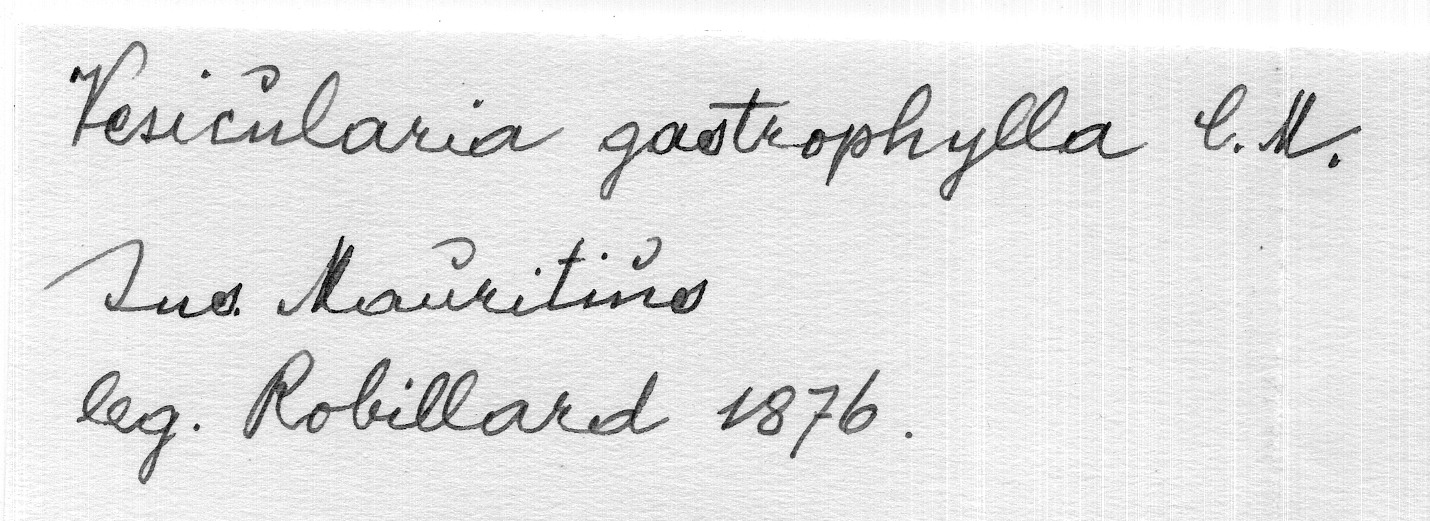 Vesicularia gastrophylla C. M.
Ins. Mauritius
leg. Robillard 1876.